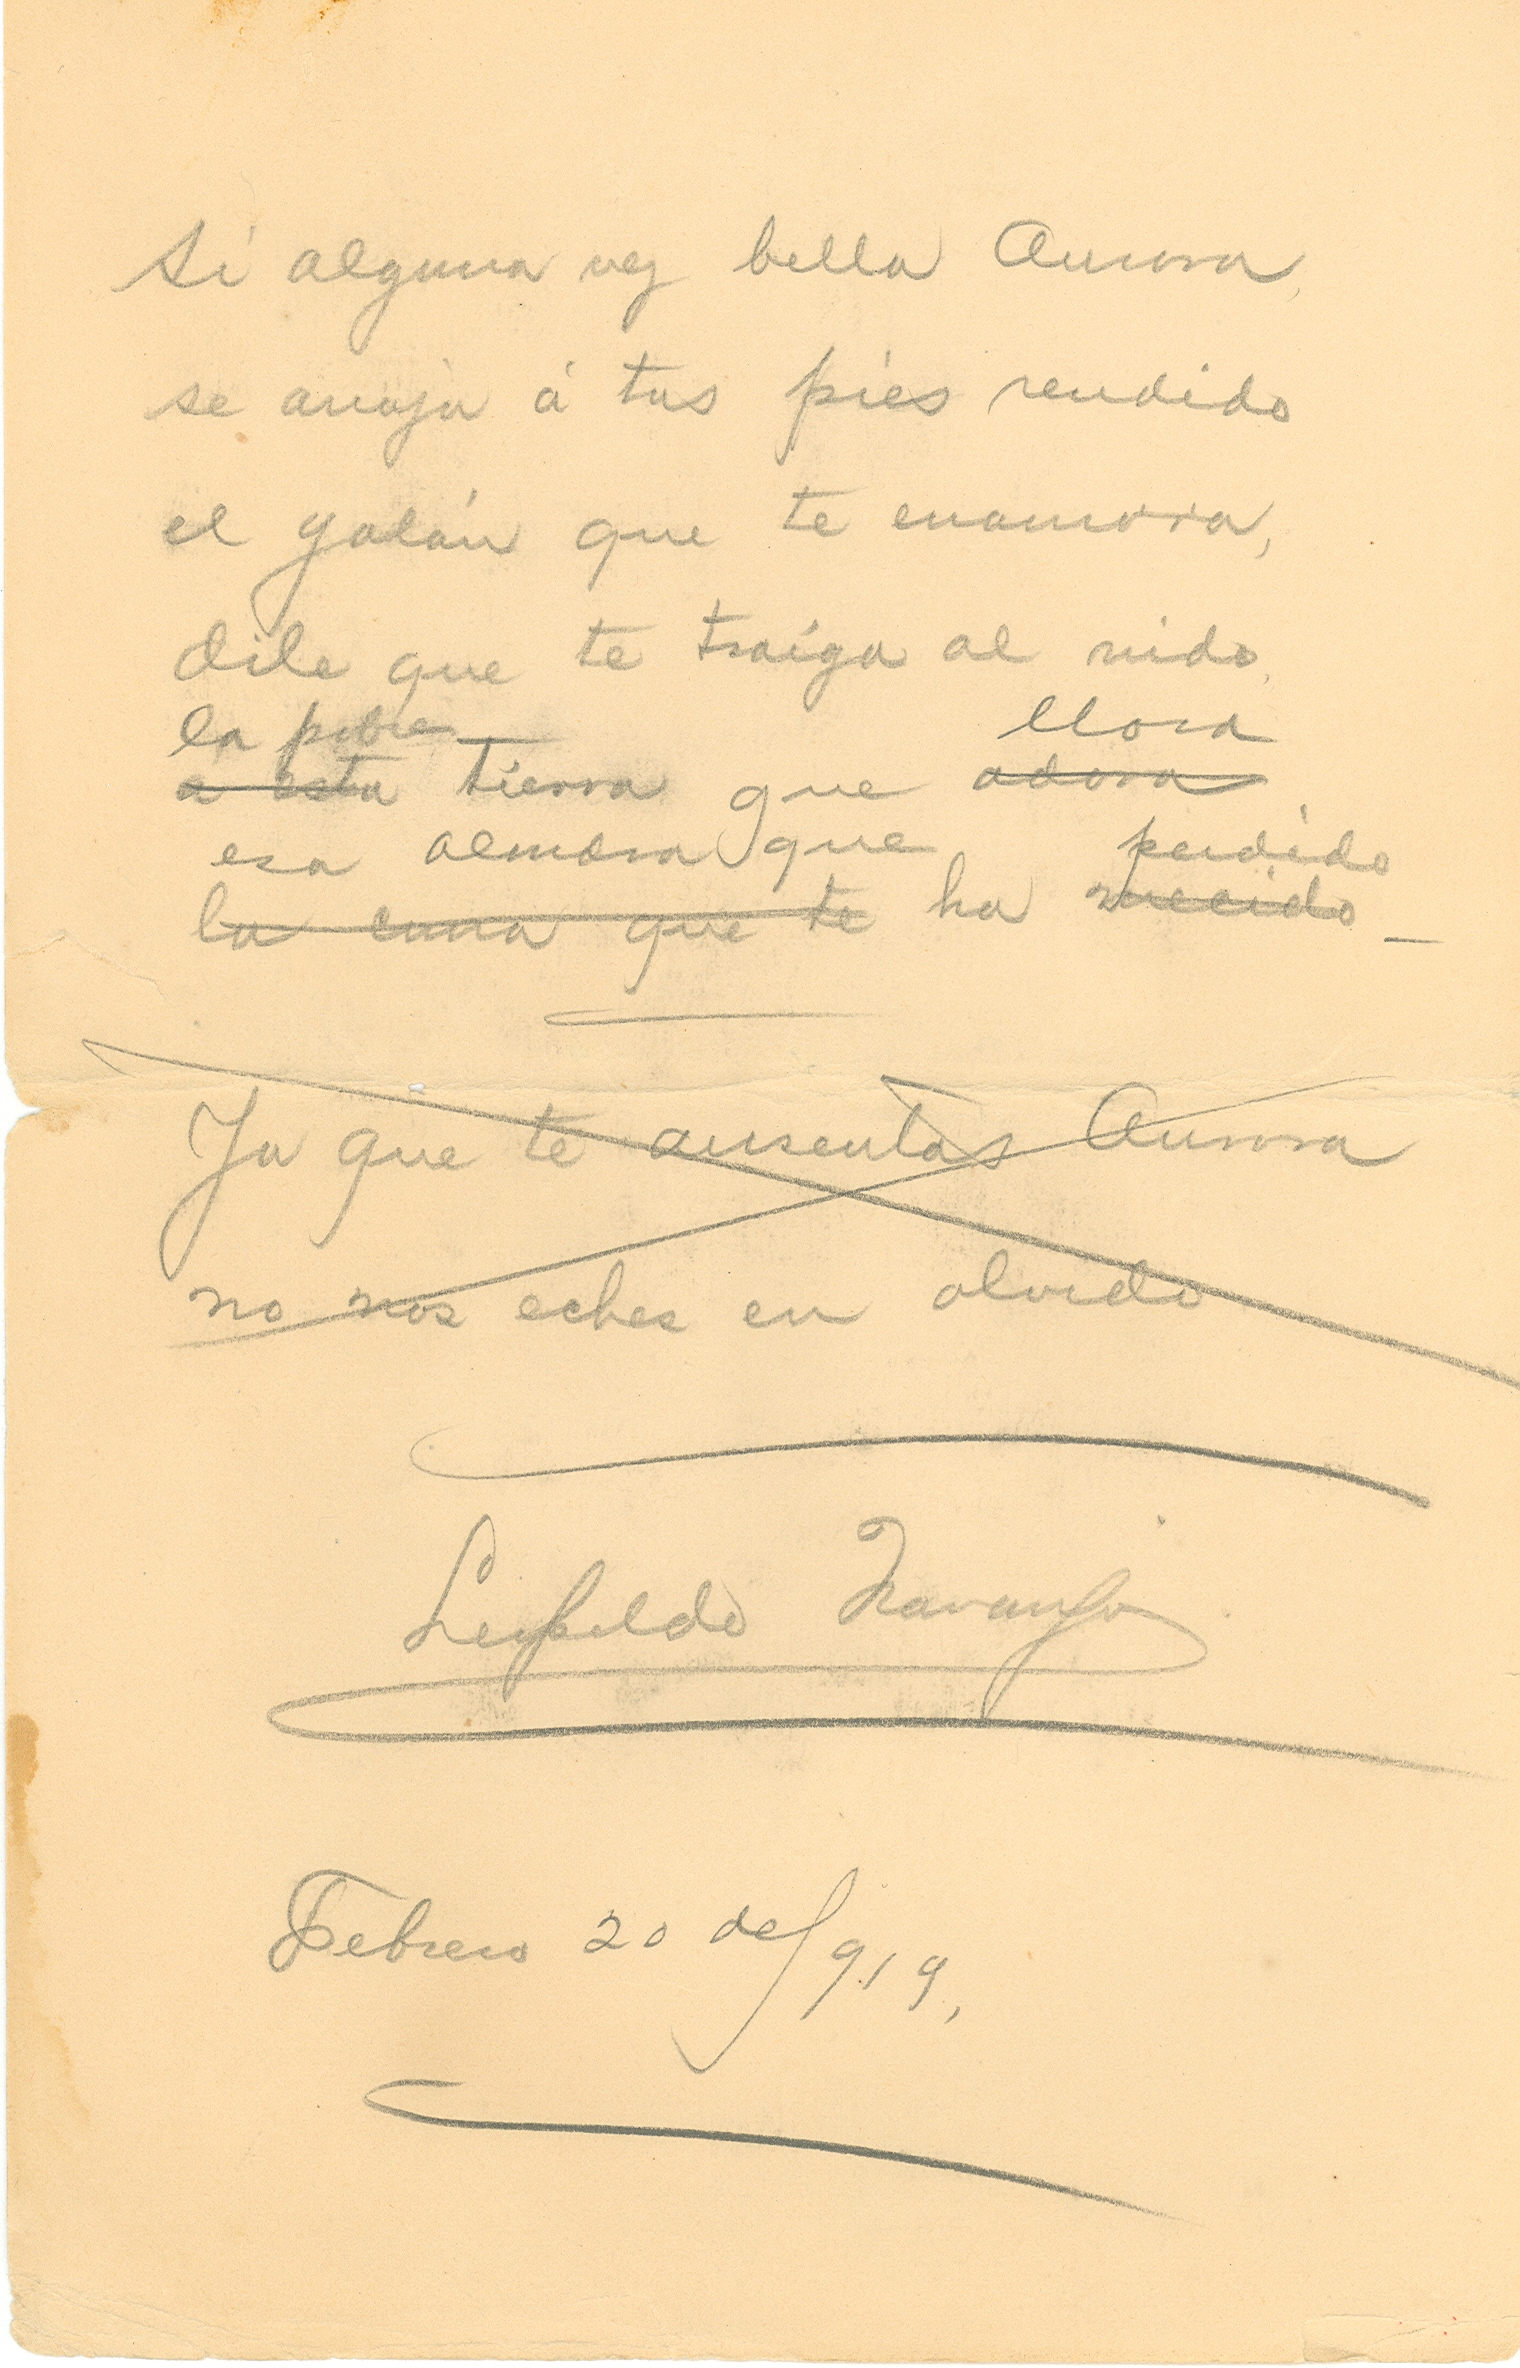 Si alguna vez bella Aurora,
se arroja á tus pies rendido
el galán que te enamora,
dile que te traiga al nido,
la pobre llora
a esta tierra que adora,
esa que perdido
la cuna que te ha mecido_
Ya que te ausentas Aurora
no nos eches en olvido
Leopoldo Naranjo
Febrero 20 del 919,